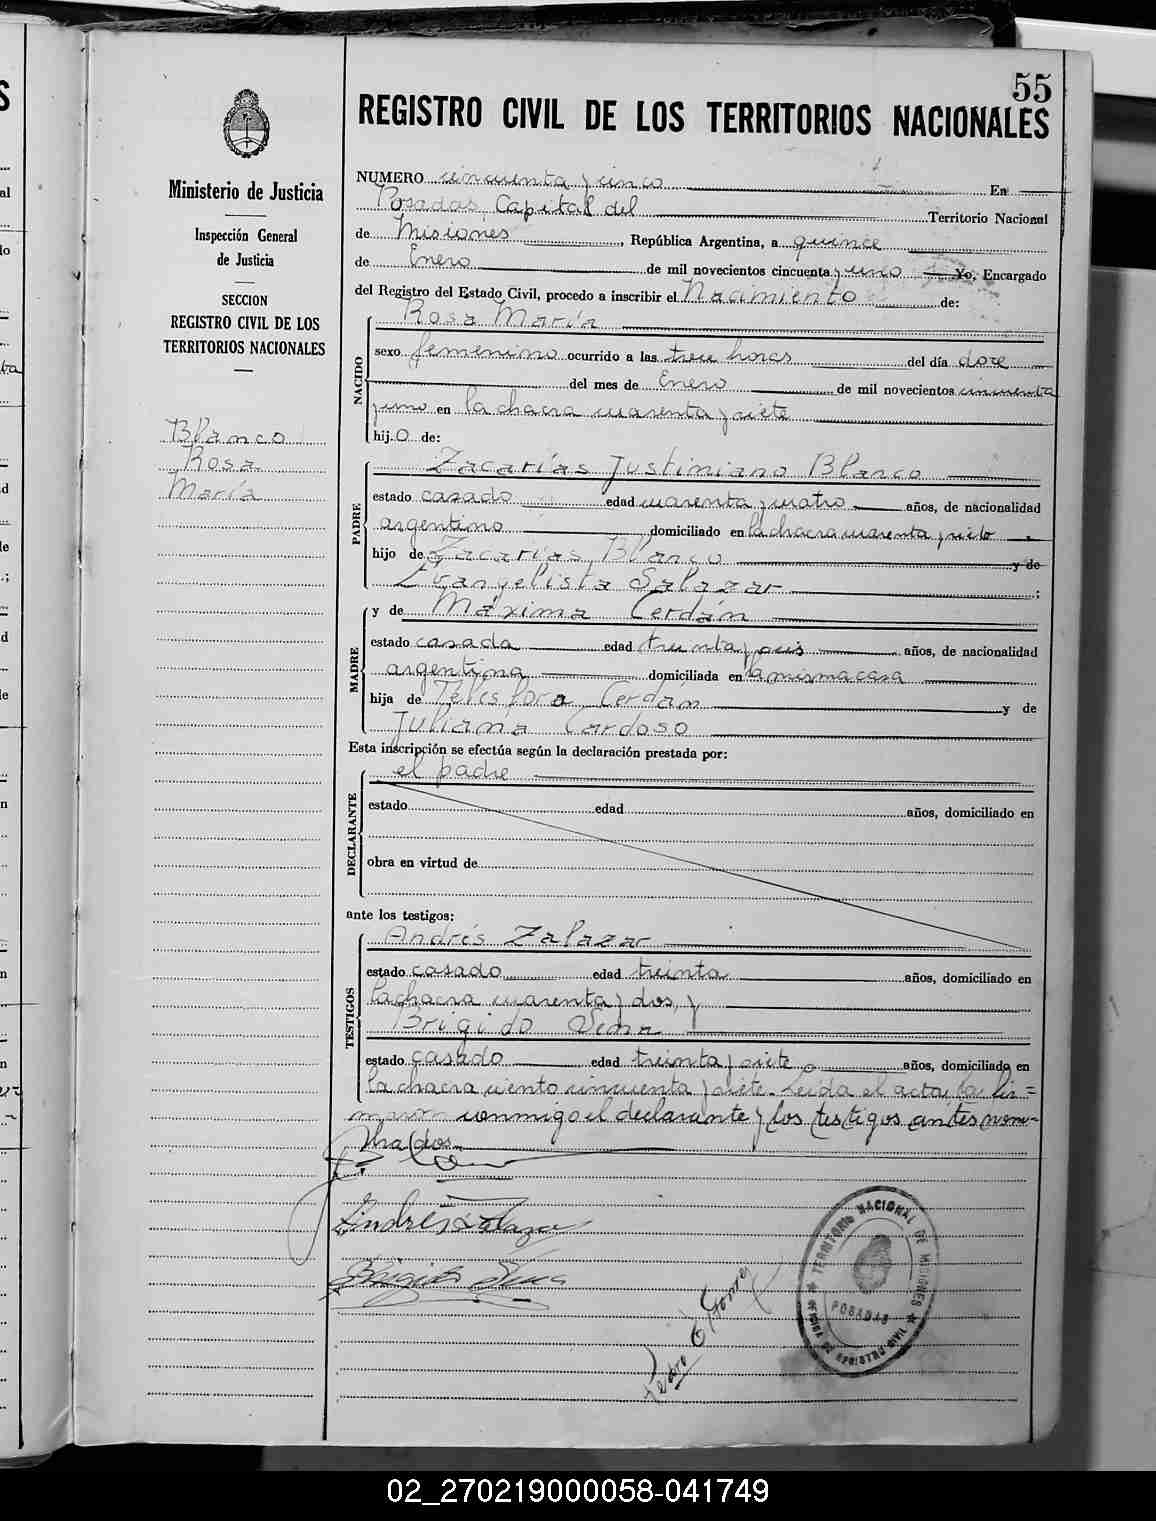 55
REGISTRO CIVIL DE LOS TERRITORIOS NACIONALES
Ministerio de Justicia
Inspección General
de Justicia
SECCION
REGISTRO CIVIL DE LOS
TERRITORIOS NACIONALES
Blanco
Rosa
María
NUMERO cincuenta y cinco En
Posadas, Capital del Territorio Nacional
de Misiones, República Argentina, a quince
de Enero de mil novecientos cincuenta y uno Yo, Encargado
del Registro del Estado Civil, procedo a inscribir el Nacimiento de:
NACIDO
Rosa María
sexo femenino ocurrido a las trece horas del día doce
del mes de Enero de mil novecientos cincuenta
y uno en la chacra cuarenta y siete
hijo de:
PADRE
Zacarías Justiniano Blanco
estado casado edad cuarenta y cuatro años, de nacionalidad
argentino domiciliado en la chacra cuarenta y siete
hijo de Zacarías Blanco y de
Evangelista Salazar;
MADRE
y de Máxima Cerdán
estado casada edad treinta y seis años, de nacionalidad
argentina domiciliada en la misma casa
hija de Telésfora Cerdán y de
Juliana Cardoso
Esta inscripción se efectúa según la declaración prestada por:
DECLARANTE
el padre
estado edad años, domiciliado en
obra en virtud de
ante los testigos:
TESTIGOS
Andrés Zalazar
estado casado edad treinta años, domiciliado en
la chacra cuarenta y dos, y
Brigido Sena
estado casado edad treinta y siete años, domiciliado en
la chacra ciento cincuenta y siete. Leída el acta, la fir=
maron conmigo el declarante y los testigos antes nom-
brados.
Andrés Zalazar
Brigido Sena
Pedro
TERRITORIO NACIONAL DE MISIONES
OFICINA DE REGISTRO CIVIL
POSADAS
02_270219000058-041749